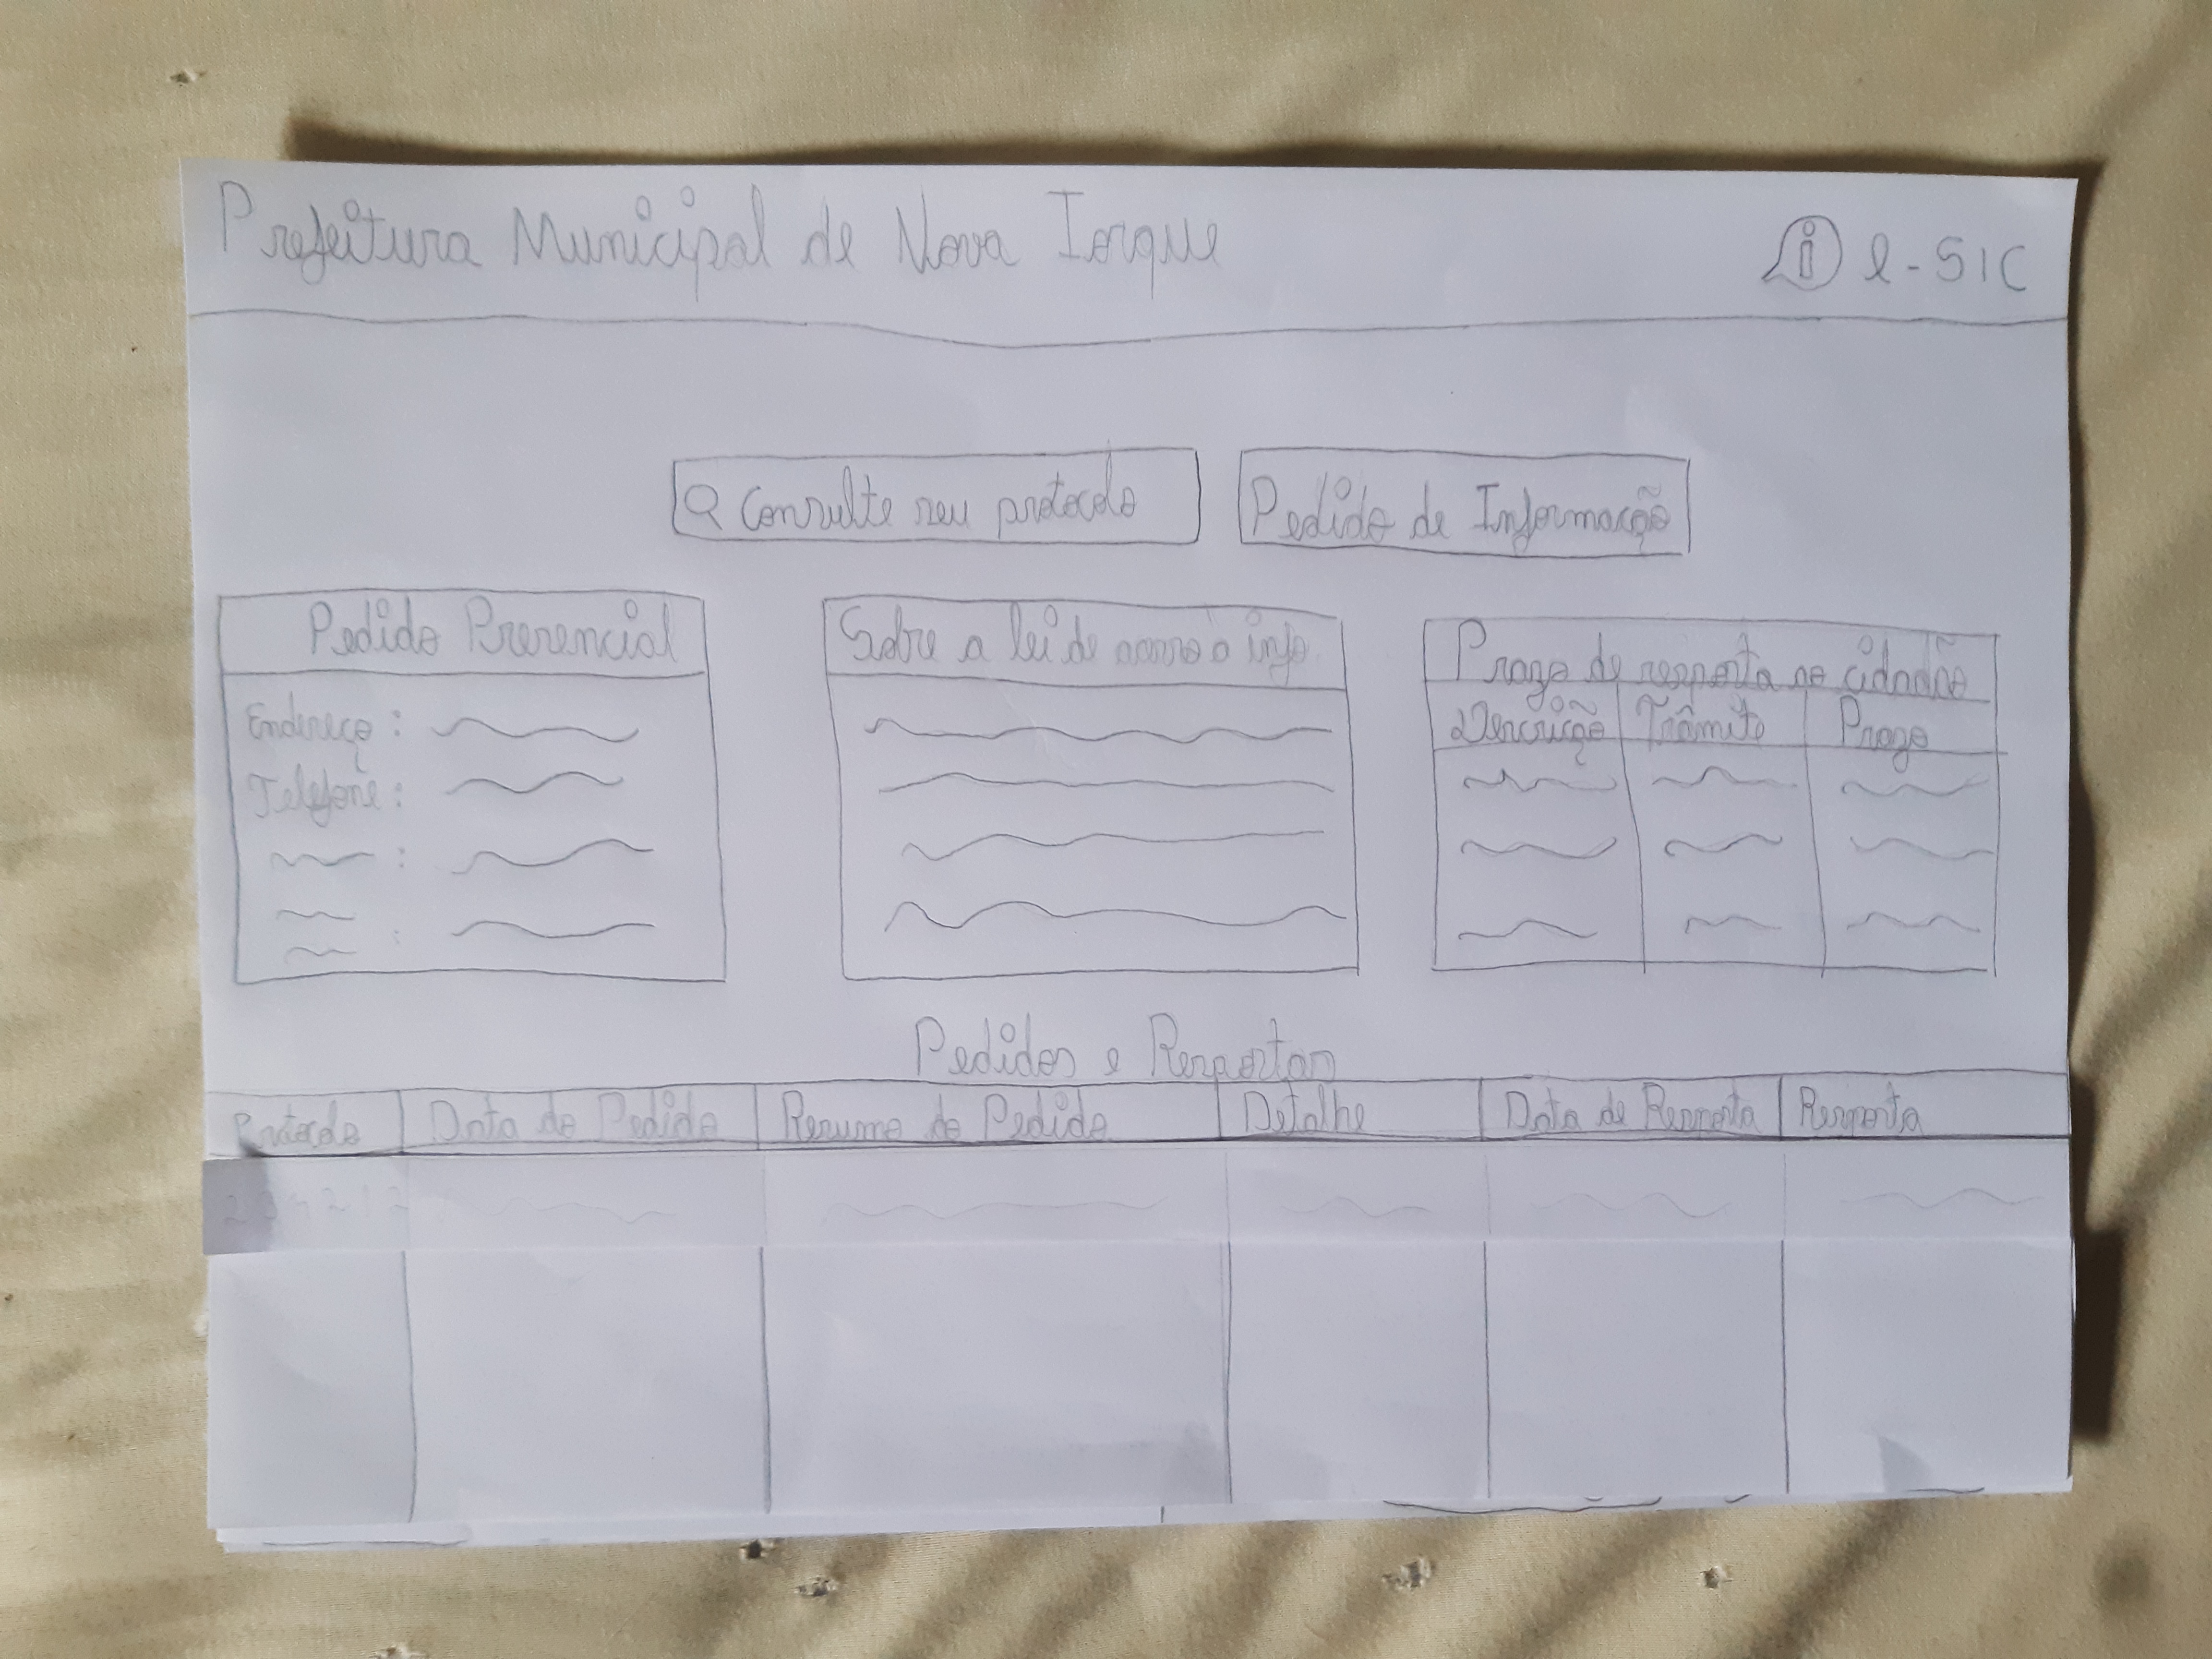 Prefeitura Municipal de Nova Iorque
i e-SIC
Consulte seu protocolo
Pedido de Informação
Pedido Presencial
Endereço :
Telefone :
Sobre a lei de acesso à info.
Prazo de resposta ao cidadão
Descrição Trâmite Prazo
Pedidos e Respostas
Protocolo Data do Pedido Resumo do Pedido Detalhe Data de Resposta Resposta